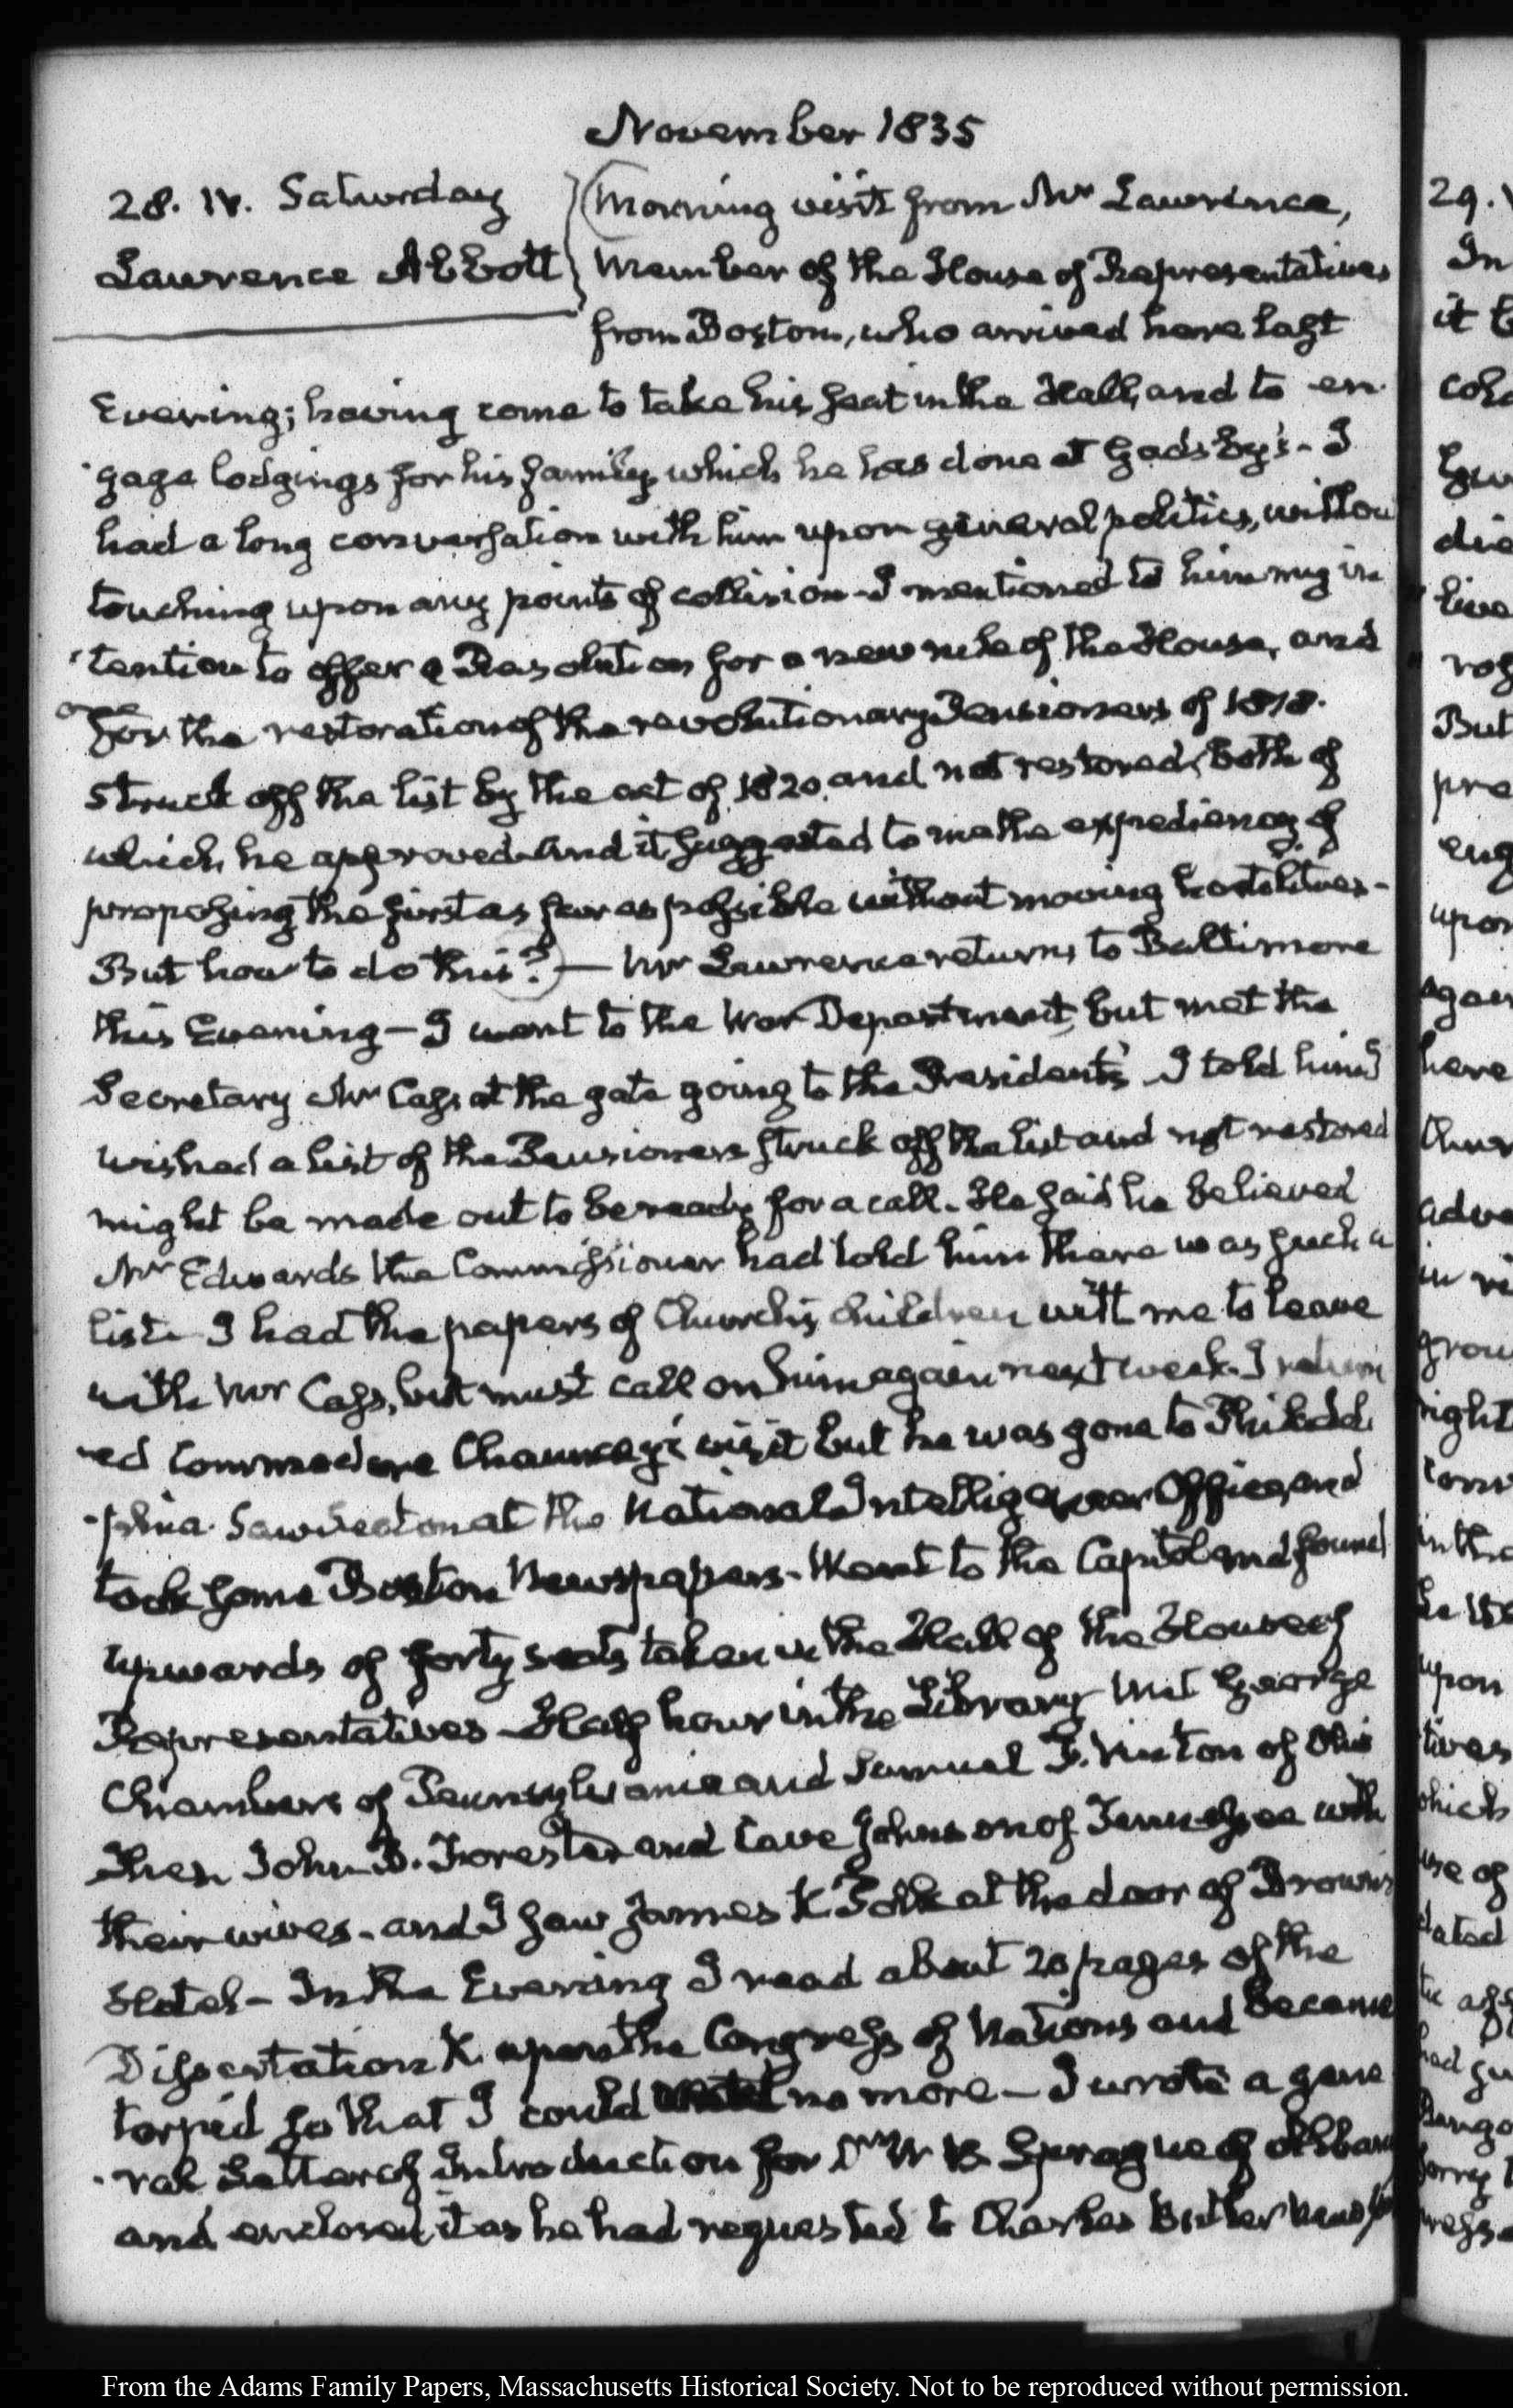 November 1835
28. IV. Saturday
Lawrence Abbott
Morning visit from Mr Lawrence,
Member of the House of Representatives
from Boston, who arrived here last
Evening; having come to take his seat in the Hall, and to en-
-gage lodgings for his family, which he has done at Gadsby's - I
had a long conversation with him upon general politics, without
touching upon any points of collision - I mentioned to him my in
-tention to offer a Resolution for a new rule of the House, and
one
for the restoration of the revolutionary Pensioners of 1818.
struck off the list by the act of 1820 and not restored, both of
which he approved. And it suggested to me the expediency of
proposing the first as far as possible without moving hostilities -
But how to do this? — Mr Lawrence returns to Baltimore
this Evening — I went to the War Department, but met the
Secretary Mr Cass at the gate going to the President's. I told him I
wished a list of the Pensioners struck off the list and not restored
might be made out to be ready for a call. He said he believed
Mr Edwards the Commissioner had told him there was such a
list - I had the papers of Church's children with me to leave
with Mr Cass, but must call on him again next week. I return
-ed Commodore Chauncey's visit but he was gone to Philadel
-phia. Saw Seaton at the National Intelligencer Office, and
took some Boston Newspapers - Went to the Capitol and found
upwards of forty seats taken in the Hall of the House of
Representatives - Half hour in the Library - Met George
Chambers of Pennsylvania and Samuel F. Vinton of Ohio
Then John B. Forester and Cave Johnson of Tennessee with
their wives - and I saw James K Polk at the door of Brown's
Hotel - In the Evening I read about 20 pages of the
Dissertation K. upon the Congress of Nations and became
torpid so that I could no more — I wrote a gene
-ral Letter of Introduction for Dr W B Sprague of Albany
and enclosed it as he had requested to Charles Butler
29.
In
it
But
pre
upon
again
here
adve
grou
right
in the
upon
tives
which
use of
From the Adams Family Papers, Massachusetts Historical Society. Not to be reproduced without permission.